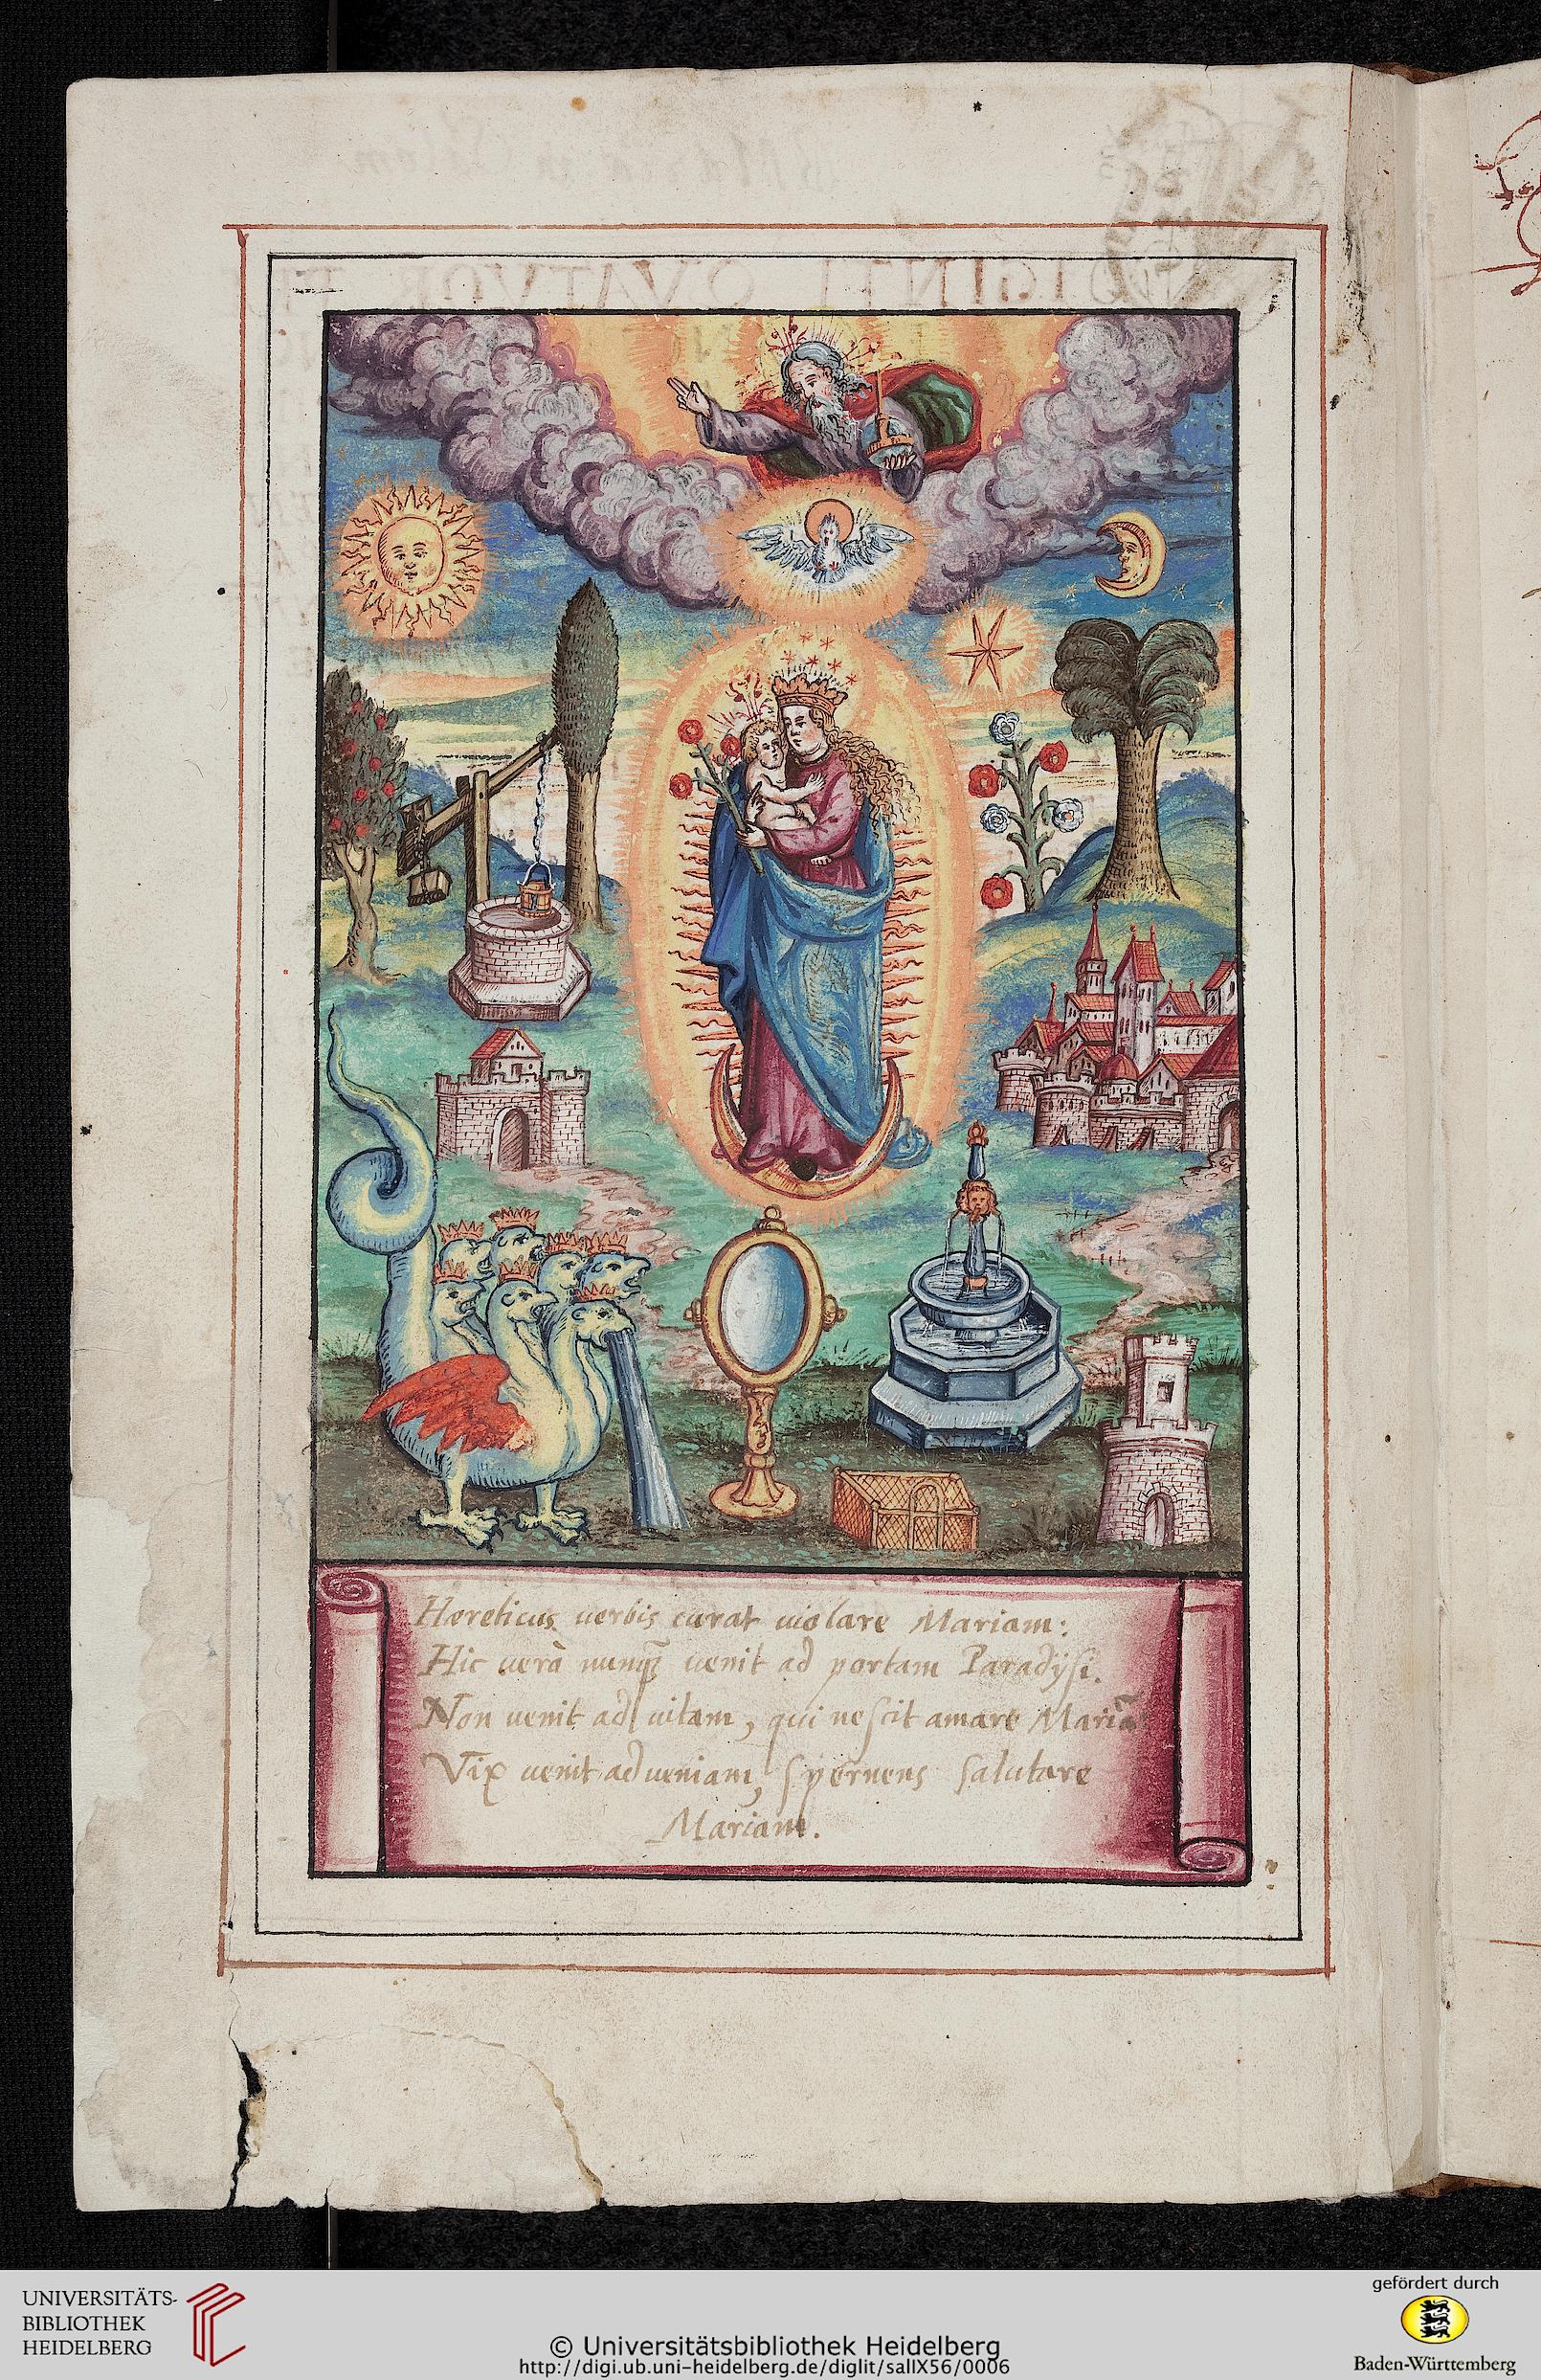 Hæreticus verbis curat uiolare Mariam:
Hic verà nunq̃ uenit ad portam Paradysi.
Non uenit ad uitam, qui nescit amare Mariã
Vix uenit ad ueniam, spernens salutare
Mariam.
UNIVERSITÄTS-
BIBLIOTHEK
HEIDELBERG
© Universitätsbibliothek Heidelberg
http://digi.ub.uni-heidelberg.de/diglit/salIX56/0006
gefördert durch
Baden-Württemberg